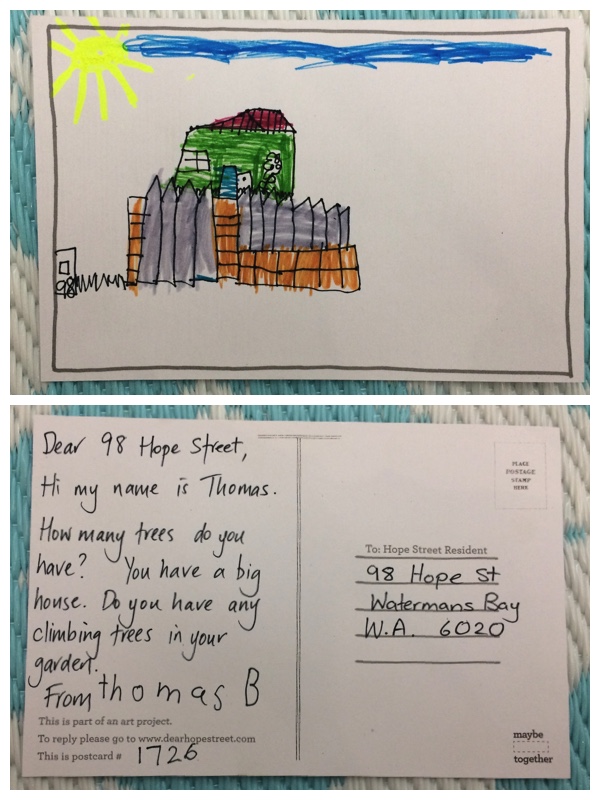 98
Dear 98 Hope Street,
Hi my name is Thomas.
How many trees do you
have? You have a big
house. Do you have any
climbing trees in your
garden.
From thomas B
This is part of an art project.
To reply please go to www.dearhopestreet.com
This is postcard # 1726
PLACE
POSTAGE
STAMP
HERE
To: Hope Street Resident
98 Hope St
Watermans Bay
W.A. 6020
maybe
together